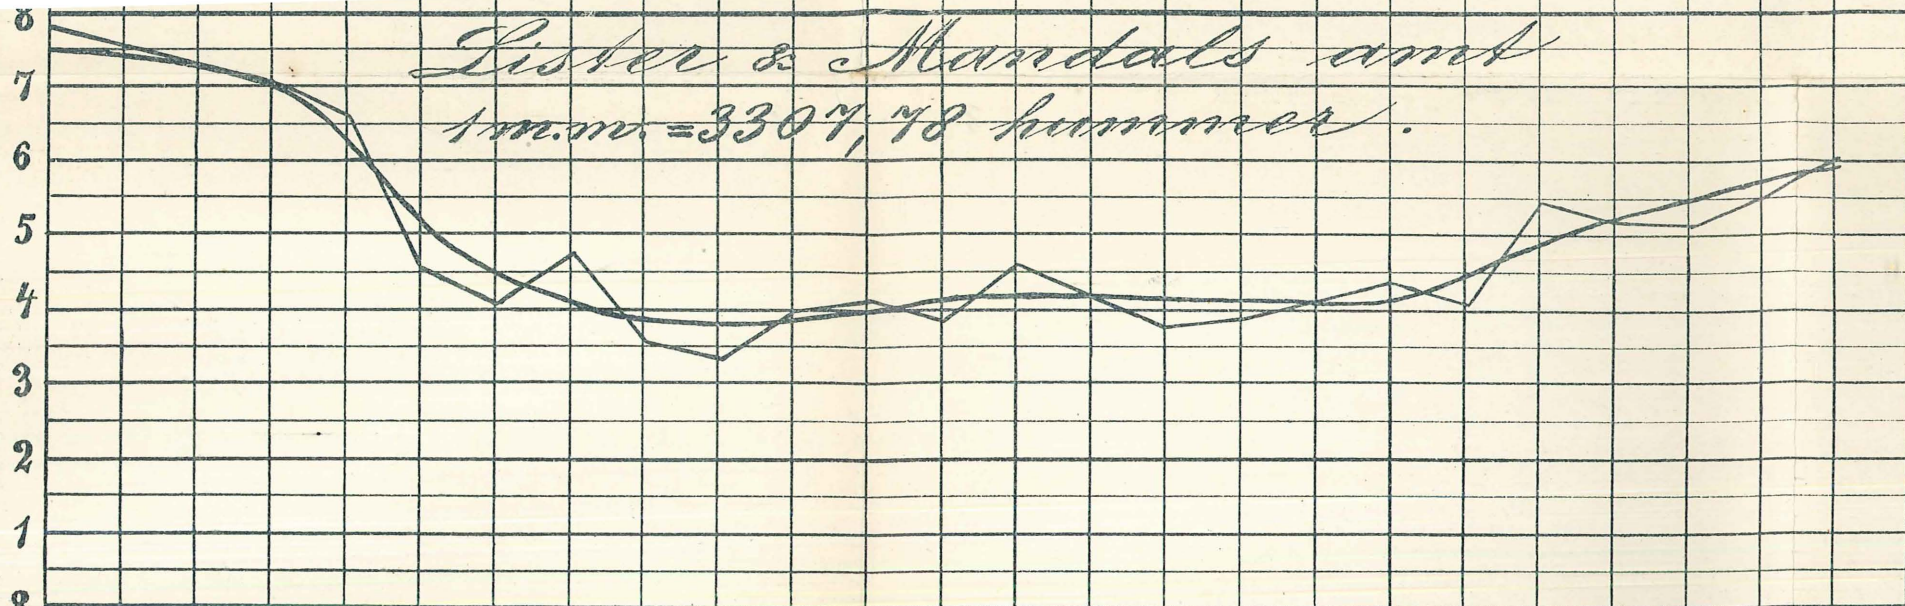 8
Lister & Mandals amt
7
1 m.m. = 3307,78 hummer.
6
5
4
3
2
1
8